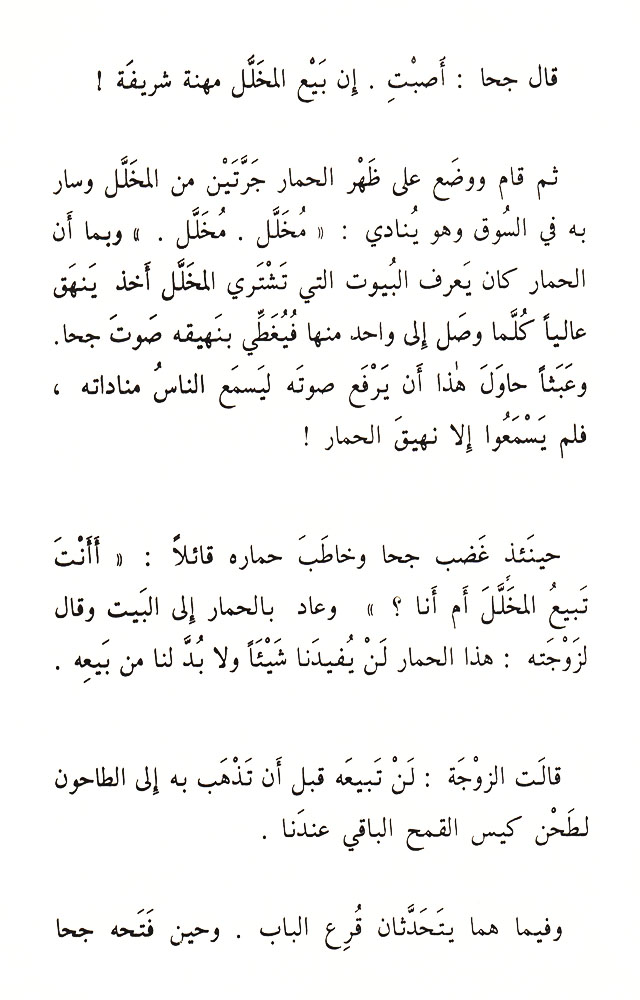 قال جحا : أَصبْتِ . إِن بَيْع المخَلَّل مهنة شريفَة !
ثم قام ووضَع على ظَهْر الحمار جَرَّتَيْن من المخَلَّل وسار
به في السُوق وهو يُنادي : « مُخَلَّل . مُخَلَّل . » وبما أَن
الحمار كان يَعرف البُيوت التي تَشْتَري المخَلَّل أَخذ يَنهَق
عالياً كُلَّما وصَل إلى واحد منها فيُغَطِّي بنَهيقه صَوتَ جحا.
وعَبَثاً حاوَلَ هٰذا أَن يَرْفَع صوتَه ليَسمَع الناسُ مناداته ،
فلم يَسْمَعُوا إِلا نهيقَ الحمار !
حينَئذٍ غَضب جحا وخاطَبَ حماره قائلاً : « أَأَنْتَ
تَبيعُ المخَلَّلَ أَم أَنا ؟ » وعاد بالحمار إِلى البَيت وقال
لزَوْجَته : هذا الحمار لَنْ يُفيدَنا شَيْئَاً ولا بُدَّ لنا من بَيعِه .
قالَت الزوْجَة : لَنْ تَبيعَه قبل أَن تَذْهَب به إِلى الطاحون
لطَحْن كيس القمح الباقي عندَنا .
وفيما هما يتَحَدَّثان قُرِع الباب . وحين فَتَحه جحا